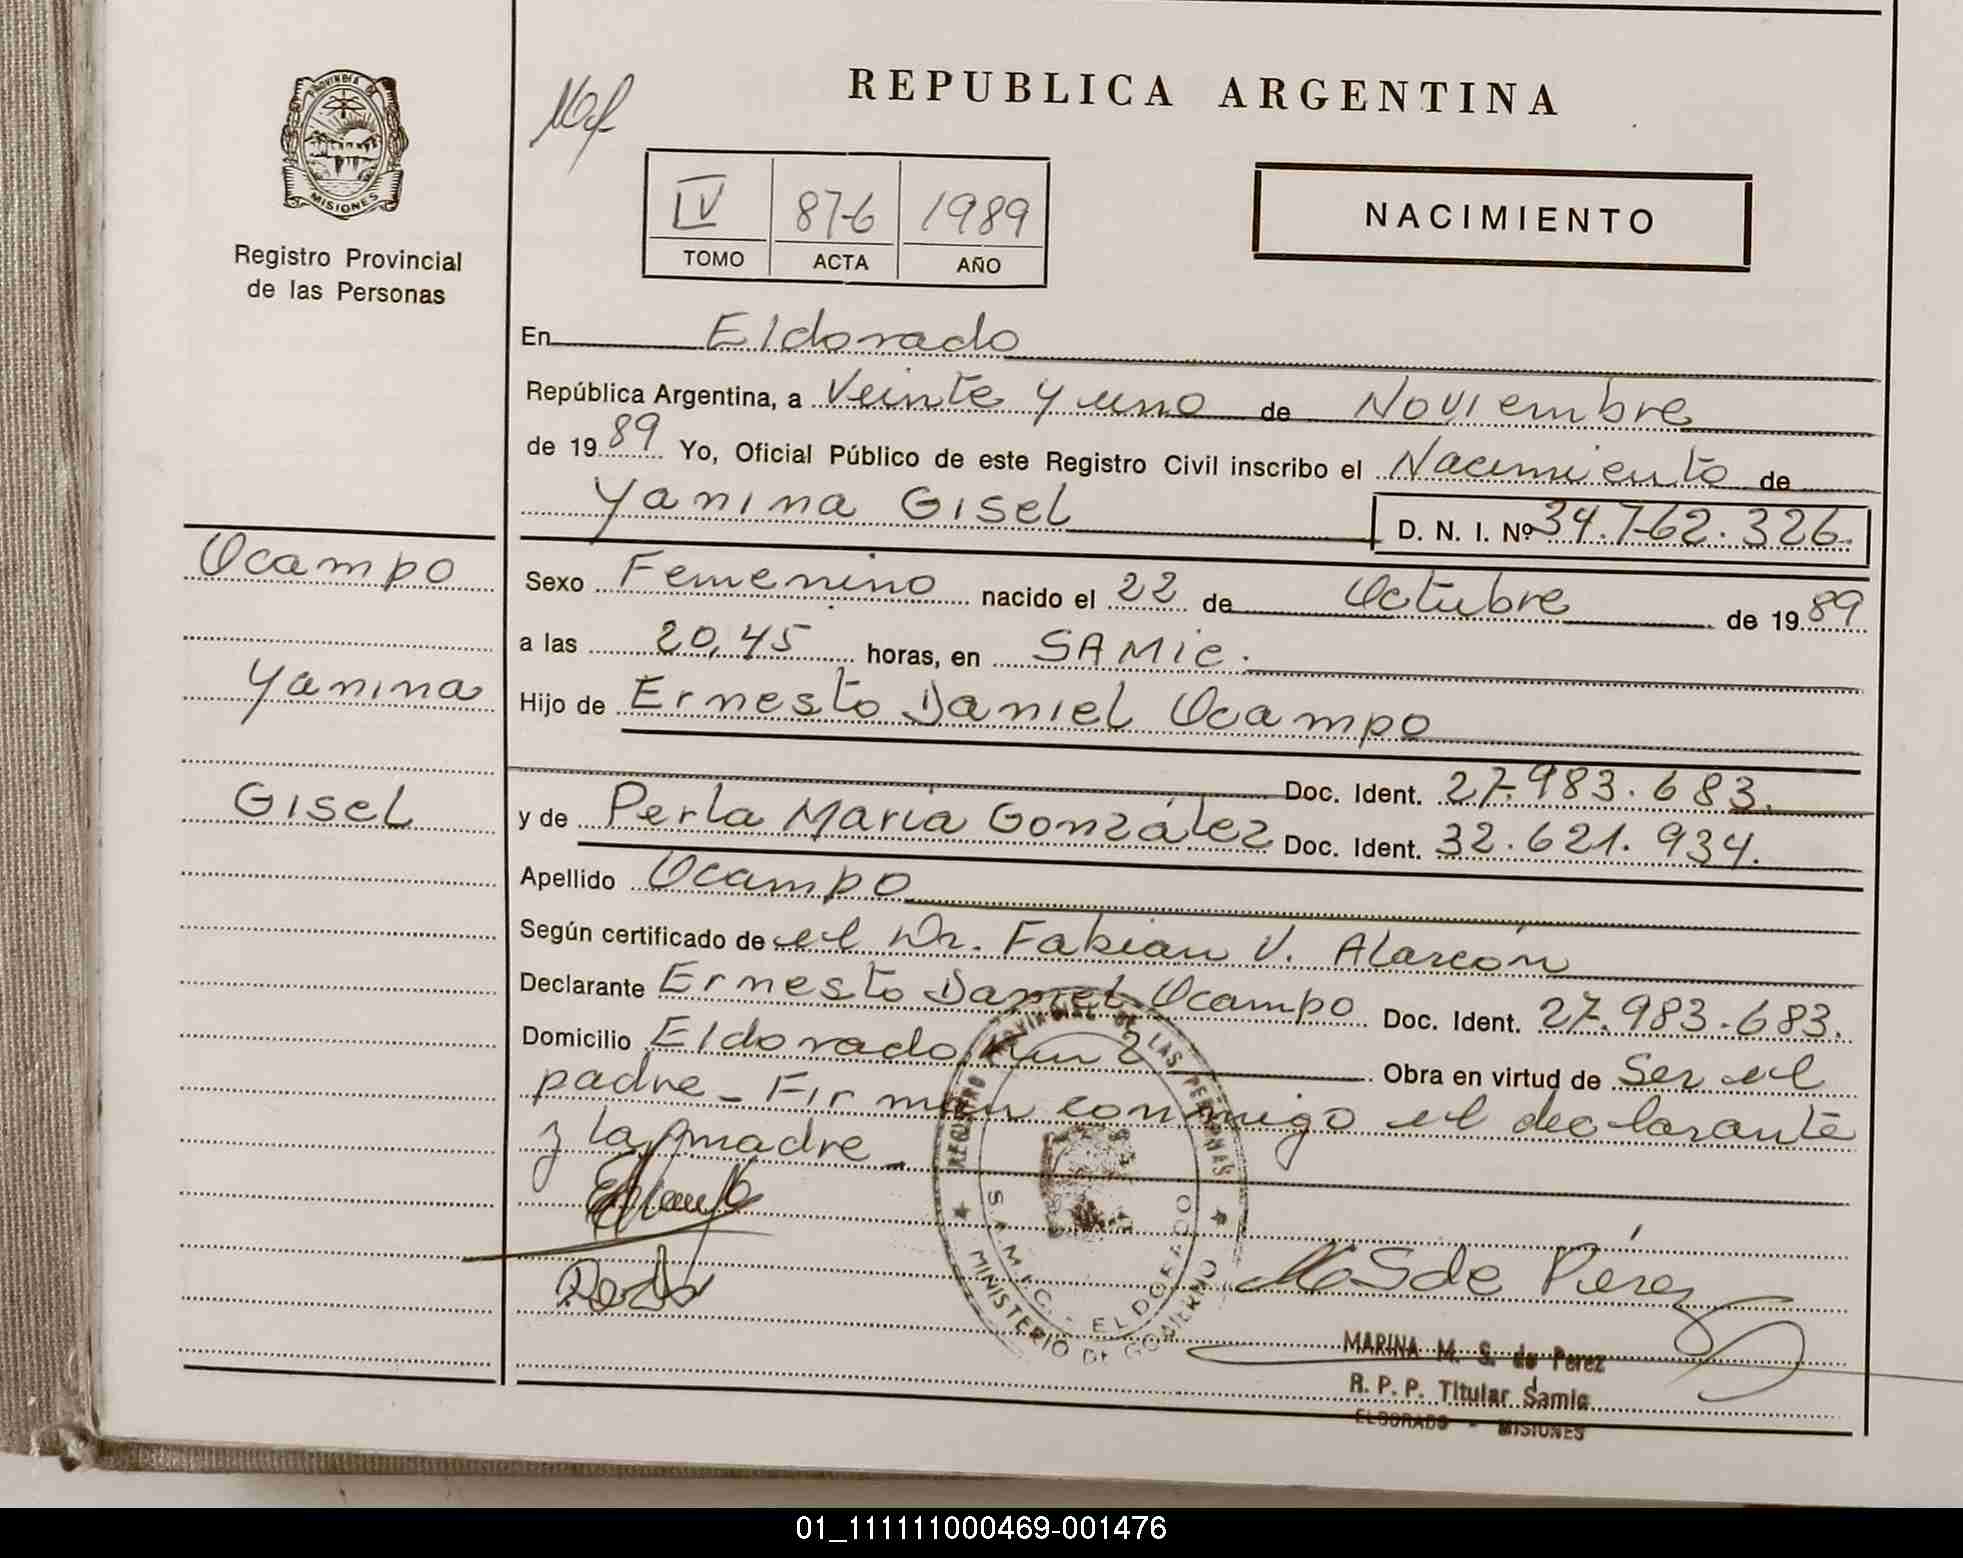 REPUBLICA ARGENTINA
PROVINCIA DE
MISIONES
Registro Provincial
de las Personas
IV 876 1989
TOMO ACTA AÑO
NACIMIENTO
En Eldorado
República Argentina, a Veinte y uno de Noviembre
de 1989 Yo, Oficial Público de este Registro Civil inscribo el Nacimiento de
Yanina Gisel D. N. I. Nº 34.762.326.
Ocampo
Yanina
Gisel
Sexo Femenino nacido el 22 de Octubre de 1989
a las 20,45 horas, en SAMic.
Hijo de Ernesto Daniel Ocampo
Doc. Ident. 27.983.683.
y de Perla Maria González Doc. Ident. 32.621.934.
Apellido Ocampo
Según certificado de el Dr. Fabian V. Alarcón
Declarante Ernesto Daniel Ocampo Doc. Ident. 27.983.683.
Domicilio Eldorado, km 2 Obra en virtud de Ser el
padre - Firman conmigo el declarante
y la madre -
REGISTRO PROVINCIAL DE LAS PERSONAS
S.A.M.I.C. - ELDORADO
MINISTERIO DE GOBIERNO
S de Pérez
MARINA M. S. de Perez
R. P. P. Titular Samic
ELDORADO - MISIONES
01_111111000469-001476